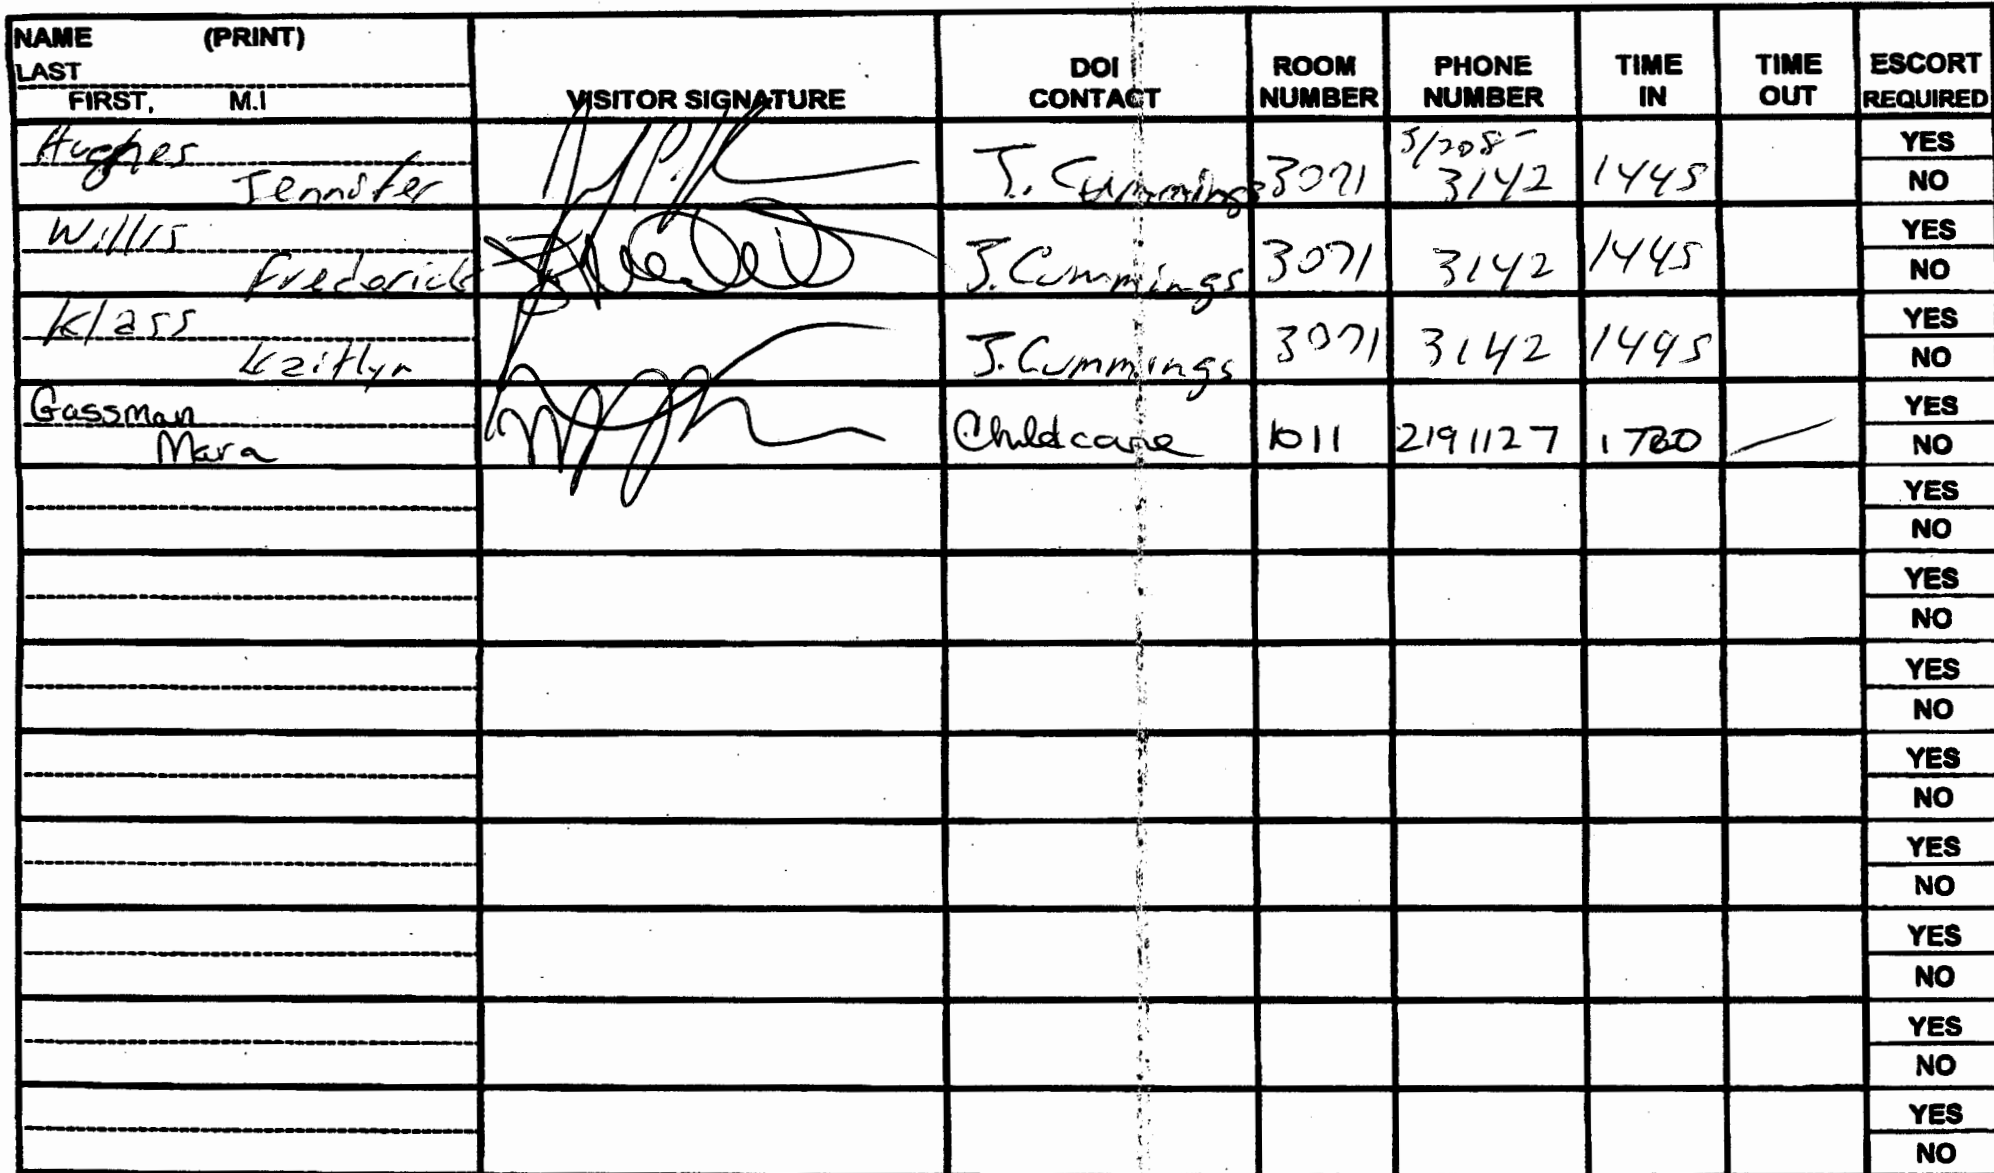 NAME (PRINT)
LAST
FIRST, M.I
VISITOR SIGNATURE
DOI CONTACT
ROOM NUMBER
PHONE NUMBER
TIME IN
TIME OUT
ESCORT REQUIRED
Hughes
Jennifer
J. Cummings 3071 5/208- 3142 1445
YES
NO
Willis
Frederick
J. Cummings 3071 3142 1445
YES
NO
Klass
Kaitlyn
J. Cummings 3071 3142 1445
YES
NO
Gassman
Mara
Childcare 1011 2191127
YES
NO
YES
NO
YES
NO
YES
NO
YES
NO
YES
NO
YES
NO
YES
NO
YES
NO